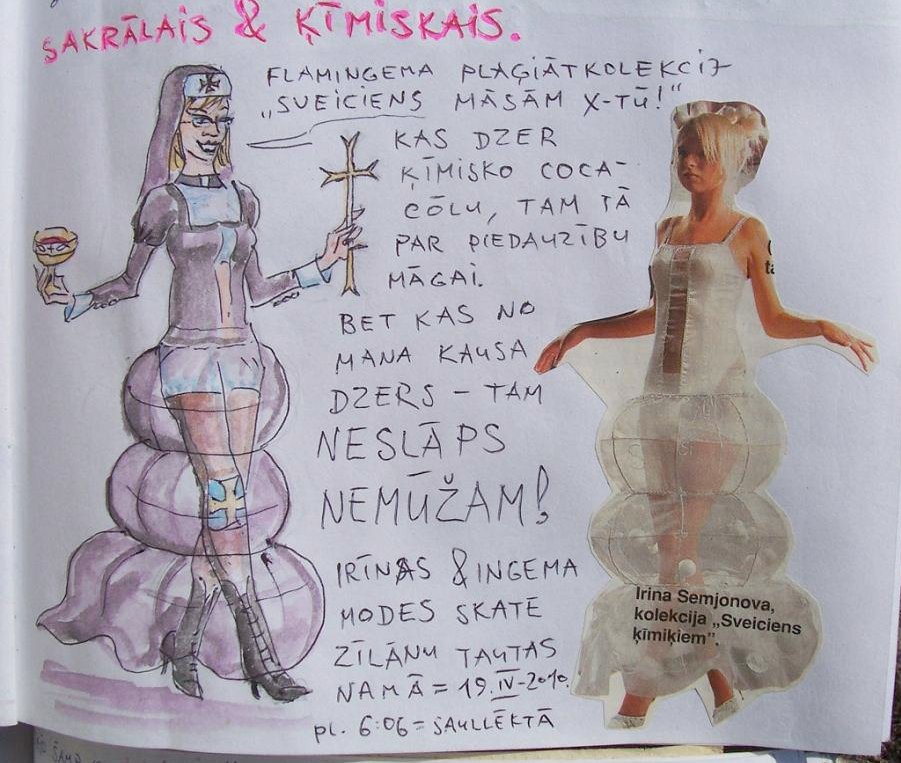 SAKRĀLAIS & ĶĪMISKAIS.
FLAMINGEMA PLAĢIĀTKOLEKCIJ
„SVEICIENS MĀSĀM X-TŪ!"
KAS DZER
ĶĪMISKO COCA-
CŌLU, TAM TĀ
PAR PIEDAUZĪBU
MĀGAI.
BET KAS NO
MANA KAUSA
DZERS – TAM
NESLĀPS
NEMŪŽAM!
IRĪNAS & INGEMA
MODES SKATE
ZĪLĀNU TAUTAS
NAMĀ = 19.IV-2010.
pl. 6:06 = SAULLĒKTĀ
Irina Semjonova,
kolekcija „Sveiciens
ķīmiķiem".